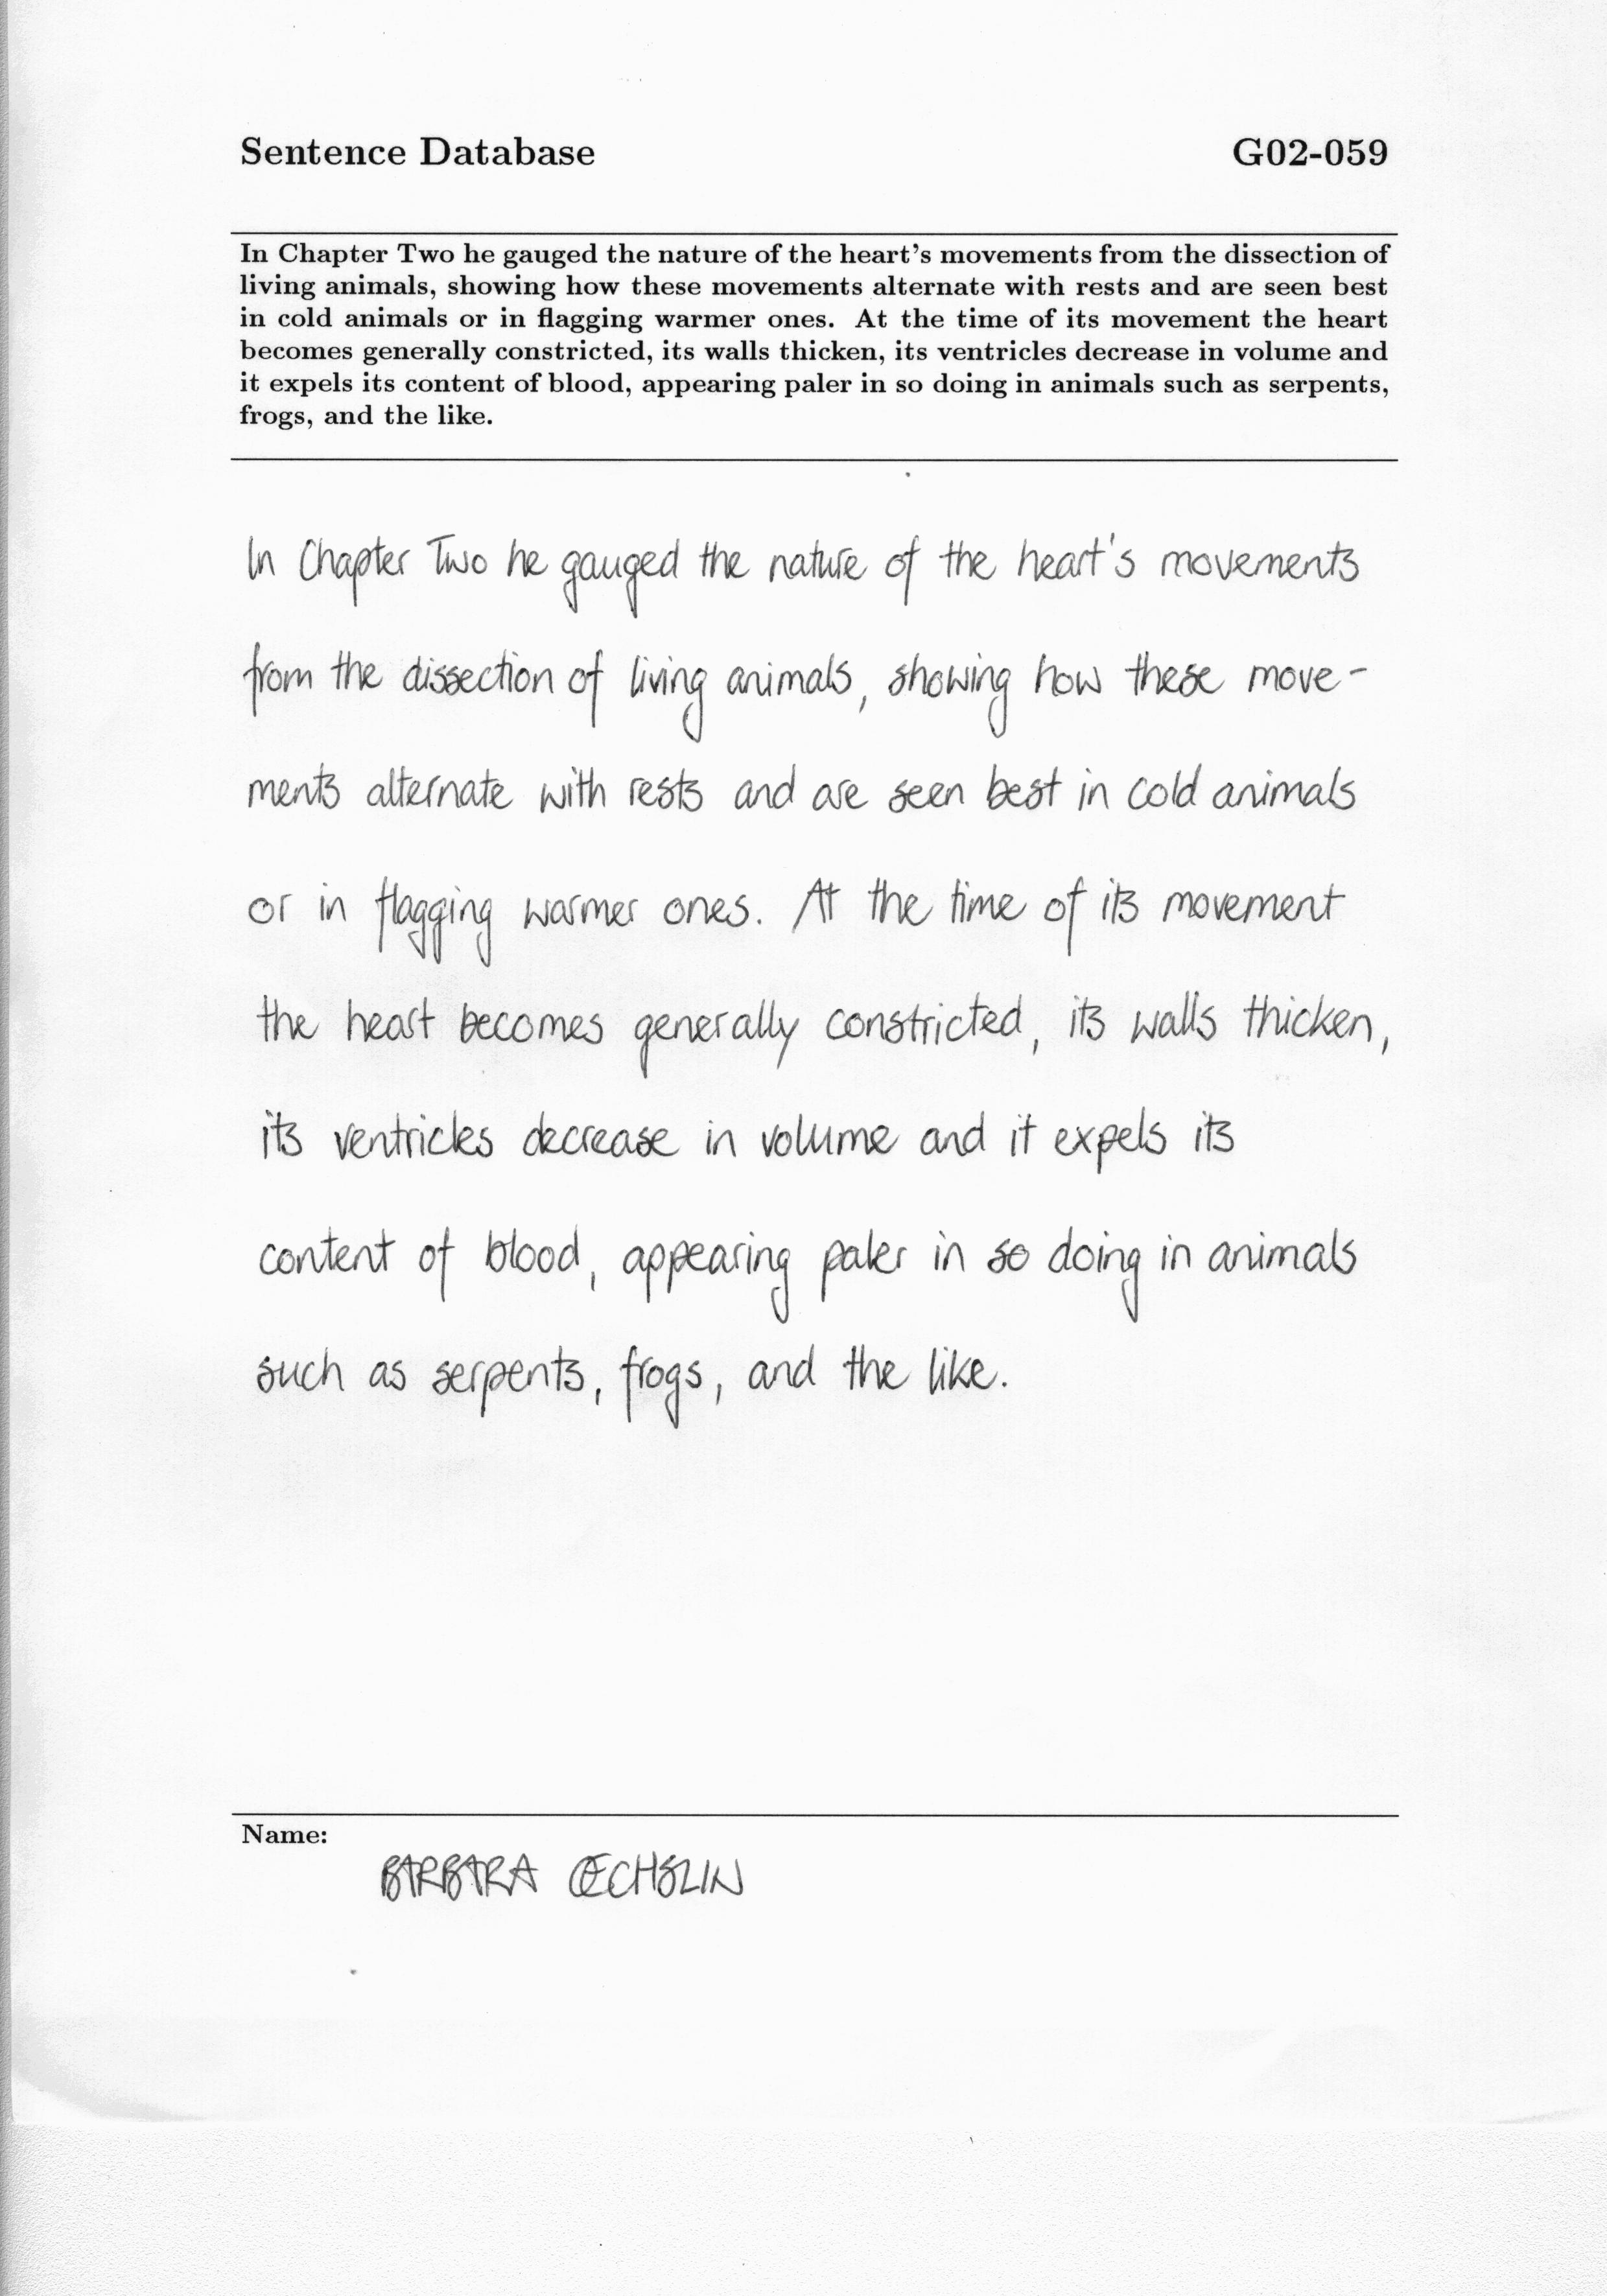 Sentence Database G02-059
In Chapter Two he gauged the nature of the heart's movements from the dissection of
living animals, showing how these movements alternate with rests and are seen best
in cold animals or in flagging warmer ones. At the time of its movement the heart
becomes generally constricted, its walls thicken, its ventricles decrease in volume and
it expels its content of blood, appearing paler in so doing in animals such as serpents,
frogs, and the like.
In Chapter Two he gauged the nature of the heart's movements
from the dissection of living animals, showing how these move-
ments alternate with rests and are seen best in cold animals
or in flagging warmer ones. At the time of its movement
the heart becomes generally constricted, its walls thicken,
its ventricles decrease in volume and it expels its
content of blood, appearing paler in so doing in animals
such as serpents, frogs, and the like.
Name:
BARBARA OECHSLIN